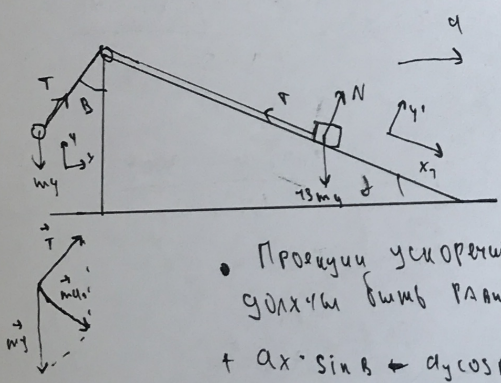 a
T
B
T
N
y'
y
x
mg
13mg
x₁
T
ma
mg
• Проекции ускорени
должны быть равн
+ ax · sin B - ay cos